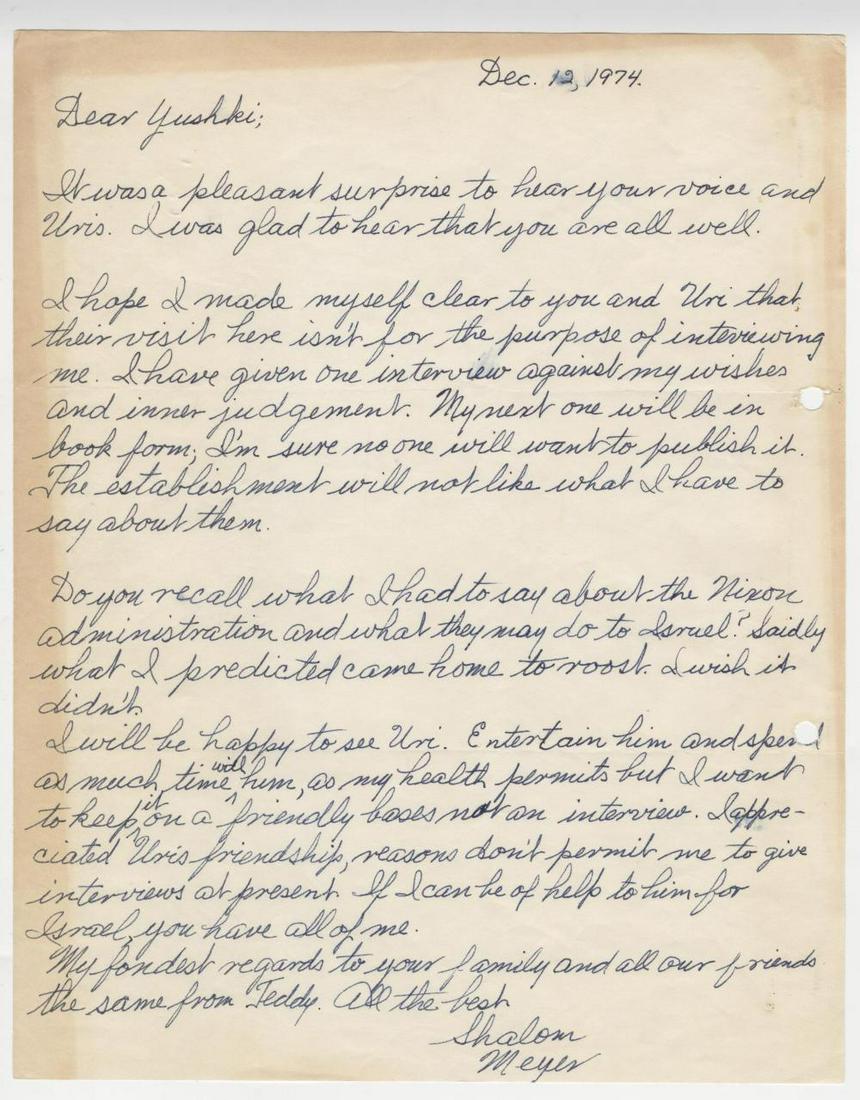 Dec. 12, 1974.
Dear Yushki;
It was a pleasant surprise to hear your voice and
Uris. I was glad to hear that you are all well.
I hope I made myself clear to you and Uri that
their visit here isn't for the purpose of interviewing
me. I have given one interview against my wishes
and inner judgement. My next one will be in
book form; I'm sure no one will want to publish it.
The establishment will not like what I have to
say about them.
Do you recall what I had to say about the Nixon
administration and what they may do to Israel? Saidly
what I predicted came home to roost. I wish it
didn't.
I will be happy to see Uri. Entertain him and spend
as much time with him, as my health permits but I want
to keep it on a friendly bases not an interview. I appre-
ciated Uris friendship, reasons don't permit me to give
interviews at present. If I can be of help to him for
Israel, you have all of me.
My fondest regards to your family and all our friends
the same from Teddy. All the best
Shalom
Meyer